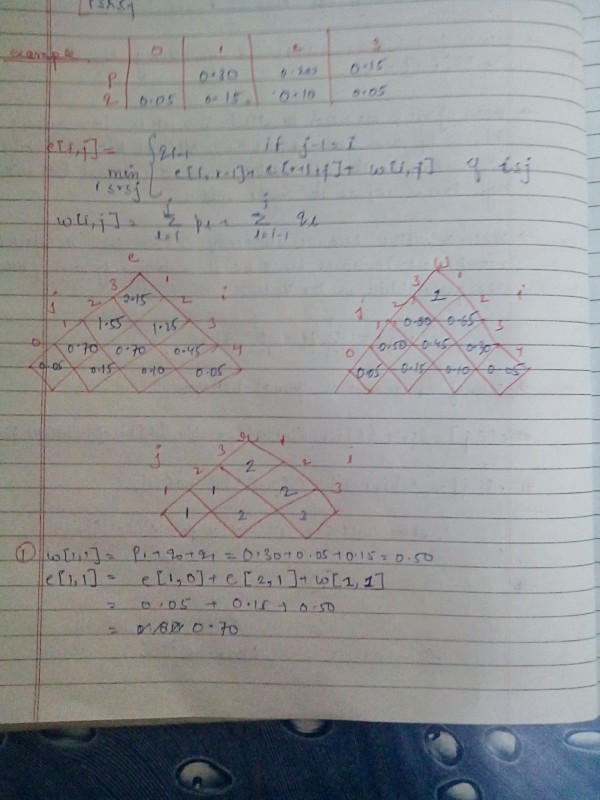 example 0 1 2 3
p 0.30 0.20 0.15
q 0.05 0.15 0.10 0.05
e[i,j] = { qi-1 if j-1=i
min i≤r≤j { e[i,r-1]+ e[r+1,j]+ w[i,j] if i≤j
w[i,j] = Σ l=i j pl + Σ l=i-1 j ql
e w
3 1 3 1
j 2 2.15 2 i j 2 1 2 i
1 1.55 1.25 3 1 0.80 0.65 3
0 0.70 0.70 0.45 4 0 0.50 0.45 0.30 4
0.05 0.15 0.10 0.05 0.05 0.15 0.10 0.05
r
j 3 1 i
2 2 2
1 1 2 3
1 2 3
① w[1,1] = P1+q0+q1 = 0.30+0.05+0.15 = 0.50
e[1,1] = e[1,0]+ e[2,1]+ w[1,1]
= 0.05 + 0.15 + 0.50
= 0.70